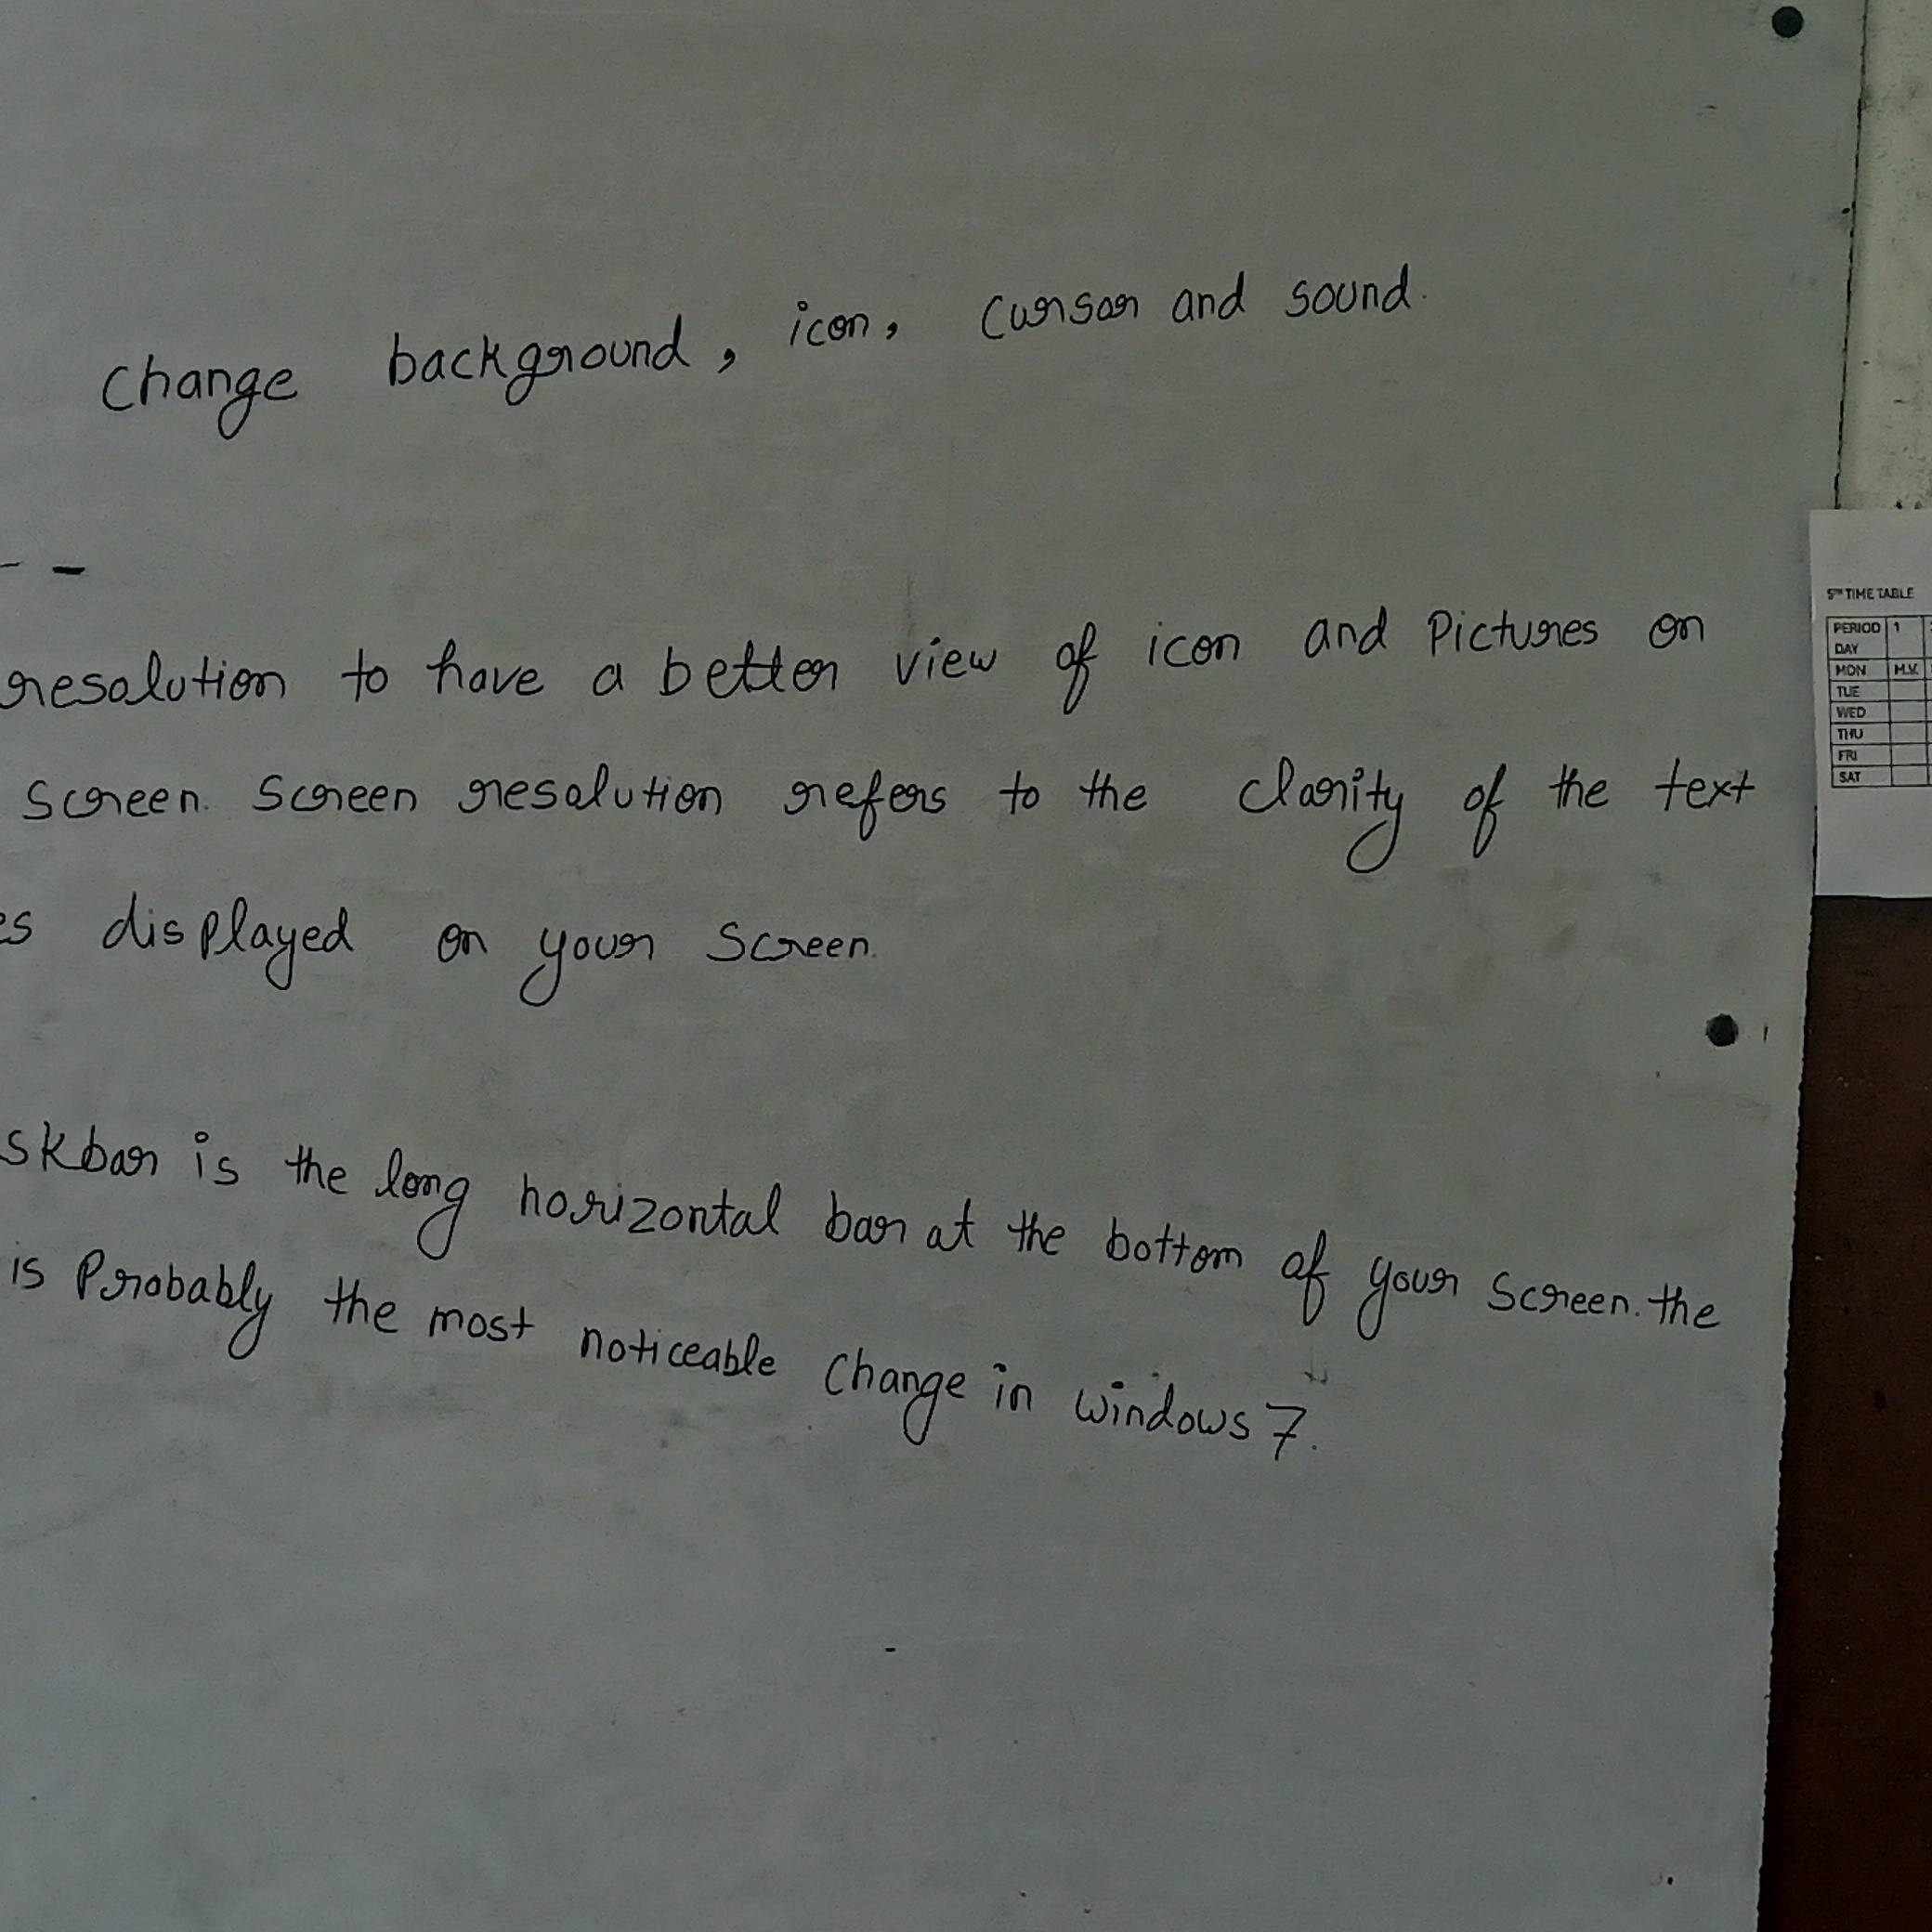 Change background, icon, Cursor and sound.
- -
resolution to have a better view of icon and Pictures on
Screen. Screen resolution refers to the clarity of the text
es displayed on your Screen.
skbar is the long horizontal bar at the bottom of your Screen. the
is Probably the most noticeable Change in windows 7.
5TH TIME TABLE
PERIOD 1
DAY
MON H.V.
TUE
WED
THU
FRI
SAT